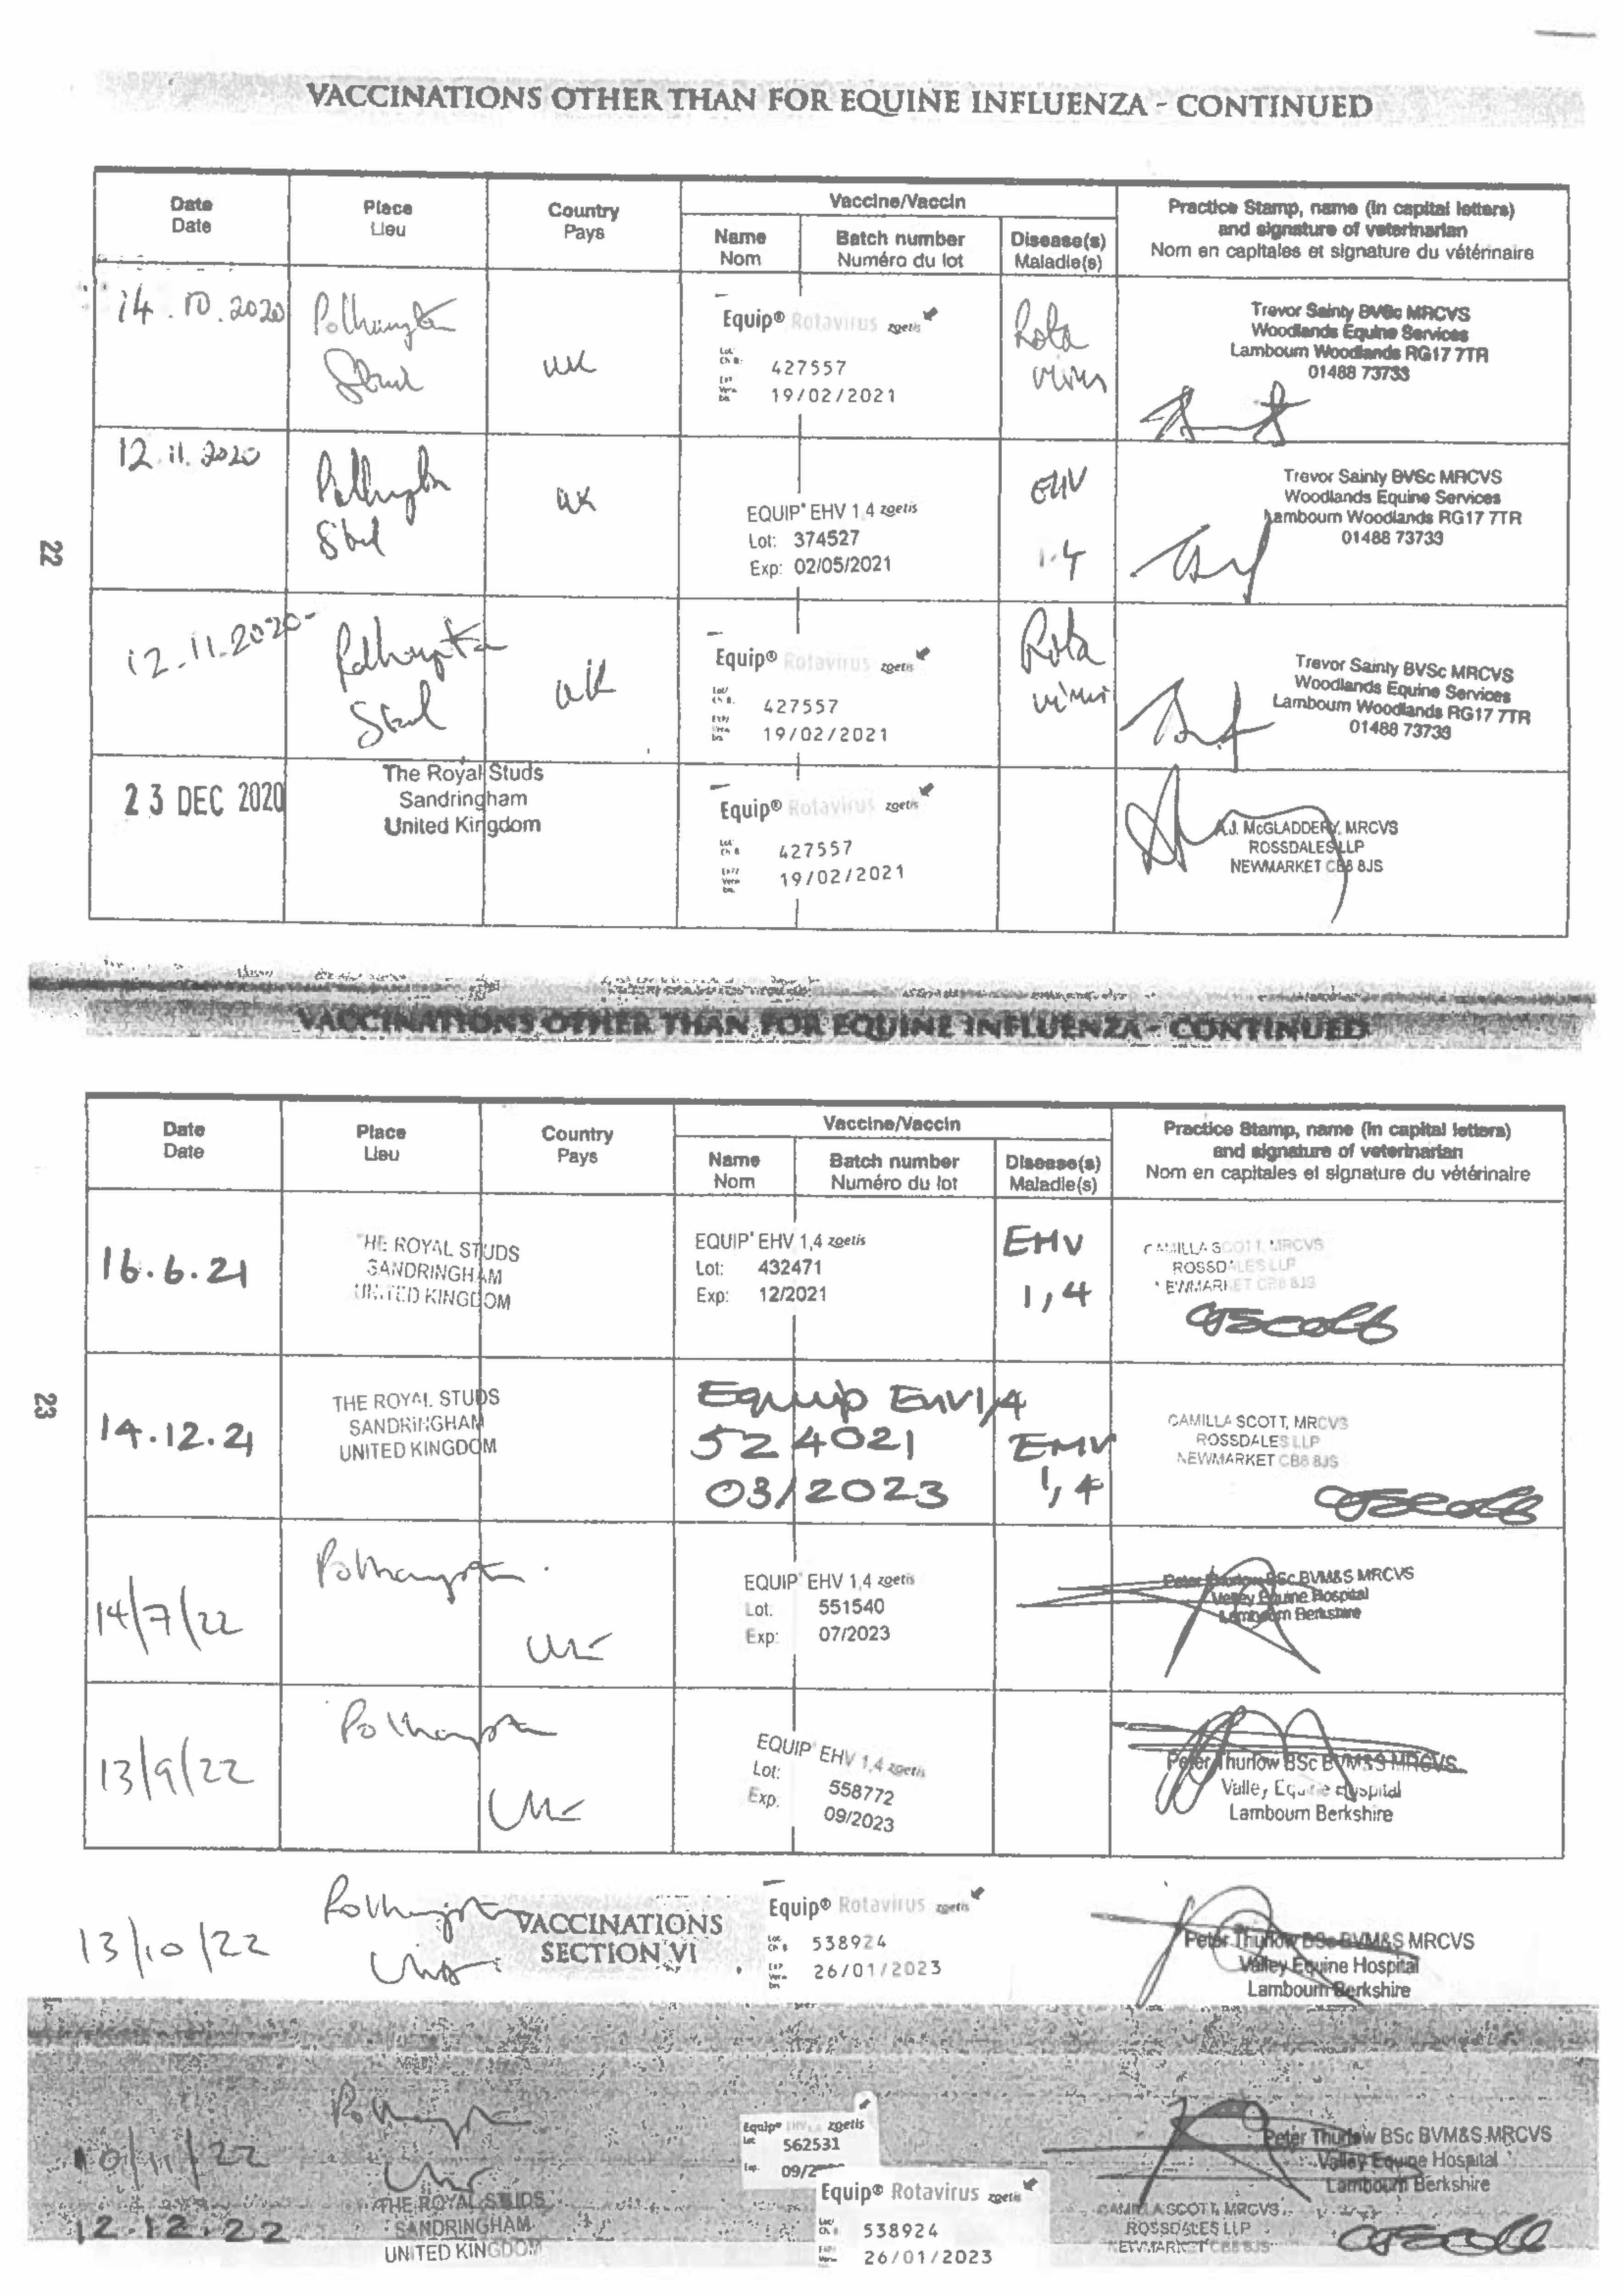 VACCINATIONS OTHER THAN FOR EQUINE INFLUENZA - CONTINUED
Date
Date
Place
Lieu
Country
Pays
Vaccine/Vaccin
Name
Nom
Batch number
Numéro du lot
Disease(s)
Maladie(s)
Practice Stamp, name (in capital letters)
and signature of veterinarian
Nom en capitales et signature du vétérinaire
14.10.2020
Polhampton
Stud
UK
Equip® Rotavirus zoetis
427557
19/02/2021
Rota
virus
Trevor Sainty BVSc MRCVS
Woodlands Equine Services
Lambourn Woodlands RG17 7TR
01488 73733
12.11.2020
Polhampton
Stud
UK
EQUIP® EHV 1,4 zoetis
Lot: 374527
Exp: 02/05/2021
EHV
1.4
Trevor Sainty BVSc MRCVS
Woodlands Equine Services
Lambourn Woodlands RG17 7TR
01488 73733
22
12.11.2020
Polhampton
Stud
UK
Equip® Rotavirus zoetis
427557
19/02/2021
Rota
virus
Trevor Sainty BVSc MRCVS
Woodlands Equine Services
Lambourn Woodlands RG17 7TR
01488 73733
23 DEC 2020
The Royal Studs
Sandringham
United Kingdom
Equip® Rotavirus zoetis
427557
19/02/2021
A.J. McGLADDERY, MRCVS
ROSSDALES LLP
NEWMARKET CB8 8JS
VACCINATIONS OTHER THAN FOR EQUINE INFLUENZA - CONTINUED
Date
Date
Place
Lieu
Country
Pays
Vaccine/Vaccin
Name
Nom
Batch number
Numéro du lot
Disease(s)
Maladie(s)
Practice Stamp, name (in capital letters)
and signature of veterinarian
Nom en capitales et signature du vétérinaire
16.6.21
THE ROYAL STUDS
SANDRINGHAM
UNITED KINGDOM
EQUIP® EHV 1,4 zoetis
Lot: 432471
Exp: 12/2021
EHV
1,4
CAMILLA SCOTT, MRCVS
ROSSDALES LLP
NEWMARKET CB8 8JS
CJScott
23
14.12.21
THE ROYAL STUDS
SANDRINGHAM
UNITED KINGDOM
Equip EHV1,4
524021
03/2023
EHV
1,4
CAMILLA SCOTT, MRCVS
ROSSDALES LLP
NEWMARKET CB8 8JS
CJScott
14/7/22
Polhampton
UK
EQUIP® EHV 1,4 zoetis
Lot: 551540
Exp: 07/2023
Peter Thurlow BSc BVM&S MRCVS
Valley Equine Hospital
Lambourn Berkshire
13/9/22
Polhampton
UK
EQUIP® EHV 1,4 zoetis
Lot: 558772
Exp: 09/2023
Peter Thurlow BSc BVM&S MRCVS
Valley Equine Hospital
Lambourn Berkshire
13/10/22
Polhampton
VACCINATIONS
SECTION VI
Equip® Rotavirus zoetis
538924
26/01/2023
Peter Thurlow BSc BVM&S MRCVS
Valley Equine Hospital
Lambourn Berkshire
10/11/22
Equip® EHV zoetis
562531
Peter Thurlow BSc BVM&S MRCVS
Valley Equine Hospital
Lambourn Berkshire
12.12.22
THE ROYAL STUDS
SANDRINGHAM
UNITED KINGDOM
Equip® Rotavirus zoetis
538924
26/01/2023
CAMILLA SCOTT, MRCVS
ROSSDALES LLP
NEWMARKET CB8 8JS
CJScott